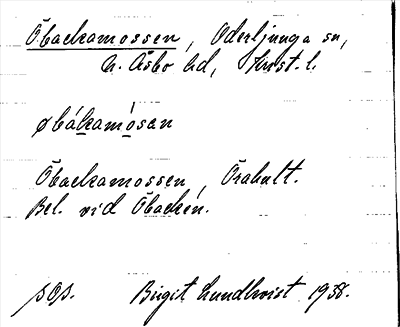 Öbackamossen, Oderljunga sn,
N. Åsbo hd, Krist. l.
øbákamòsan
Öbackamossen, Örahult.
Bel. vid Öbacken.
sOp. Birgit Lundkvist 1938.